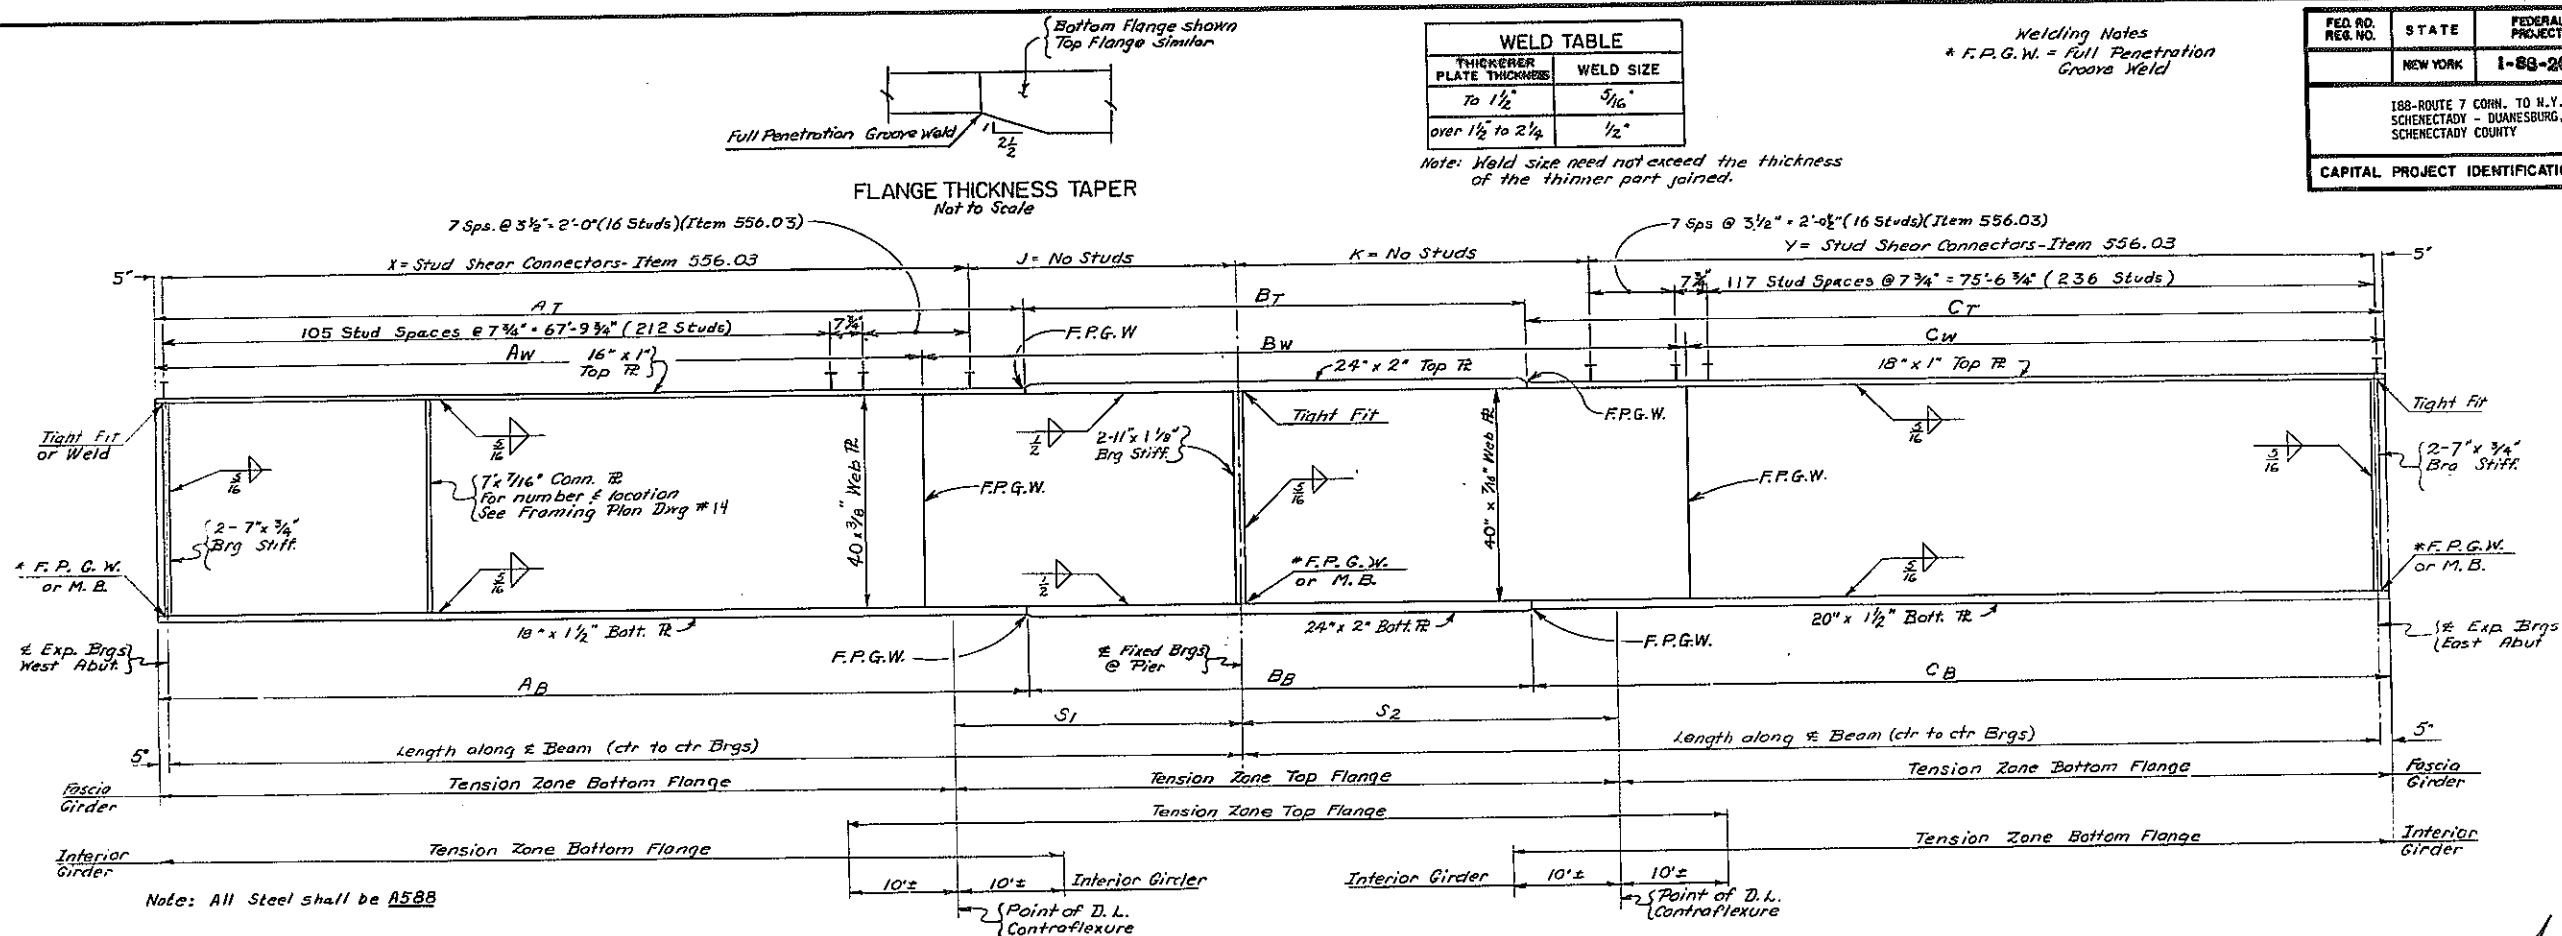 Bottom Flange shown
Top Flange Similar
Full Penetration Groove Weld
1
2 1/2
FLANGE THICKNESS TAPER
Not to Scale
WELD TABLE
THICKERER PLATE THICKNESS
WELD SIZE
To 1 1/2"
5/16"
over 1 1/2" to 2 1/4
1/2"
Note: Weld size need not exceed the thickness
of the thinner part joined.
Welding Notes
* F.P.G.W. = Full Penetration
Groove Weld
FED. RD. REG. NO.
STATE
FEDERAL PROJECT
NEW YORK
I-88-2
I88-ROUTE 7 CONN. TO N.Y.
SCHENECTADY - DUANESBURG,
SCHENECTADY COUNTY
CAPITAL PROJECT IDENTIFICATI
7 Sps. @ 3 1/2" = 2'-0" (16 Studs)(Item 556.03)
7 Sps @ 3 1/2" = 2'-0 1/2" (16 Studs)(Item 556.03)
5"
X = Stud Shear Connectors-Item 556.03
J = No Studs
K = No Studs
Y = Stud Shear Connectors-Item 556.03
5"
7 3/4"
117 Stud Spaces @ 7 3/4" = 75'-6 3/4" (236 Studs)
AT
BT
CT
105 Stud Spaces @ 7 3/4" = 67'-9 3/4" (212 Studs)
7 3/4"
F.P.G.W
AW
16" x 1"
Top PL
BW
CW
24" x 2" Top PL
18" x 1" Top PL
Tight Fit
or Weld
5/16
5/16
7" x 7/16" Conn. PL
For number & location
See Framing Plan Dwg #14
2 - 7" x 3/4"
Brg Stiff.
40 x 3/8" Web PL
F.P.G.W.
1/2
2-11" x 1 1/8"
Brg Stiff.
Tight Fit
5/16
40" x 7/16" Web PL
F.P.G.W.
F.P.G.W.
5/16
5/16
Tight Fit
2-7" x 3/4"
Brg Stiff.
* F. P. G. W.
or M. B.
5/16
1/2
* F.P.G.W.
or M. B.
5/16
* F.P.G.W.
or M. B.
18" x 1 1/2" Bott. PL
24" x 2" Bott. PL
20" x 1 1/2" Bott. PL
℄ Exp. Brgs
West Abut.
F.P.G.W.
℄ Fixed Brgs
@ Pier
F.P.G.W.
℄ Exp. Brgs
East Abut
AB
BB
CB
S1
S2
5"
Length along ℄ Beam (ctr to ctr Brgs)
Length along ℄ Beam (ctr to ctr Brgs)
5"
Fascia
Girder
Tension Zone Bottom Flange
Tension Zone Top Flange
Tension Zone Bottom Flange
Fascia
Girder
Tension Zone Top Flange
Interior
Girder
Tension Zone Bottom Flange
Tension Zone Bottom Flange
Interior
Girder
10'±
10'±
Interior Girder
Interior Girder
10'±
10'±
Note: All Steel shall be A588
Point of D. L.
Contraflexure
Point of D. L.
Contraflexure